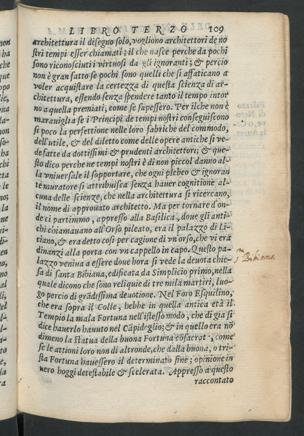 LIBRO TERZO 109
architettura il disegno solo, vogliono architettori de no
stri tempi esser chiamati; il che nasce perche da pochi
sono riconosciuti i virtuosi da gli ignoranti; & perciò
non è gran fatto se pochi sono quelli che si affaticano a
voler acquistare la certezza di questa scienza di ar-
chitettura, essendo senza spendere tanto il tempo intor
no a quella premiati, come se sapessero. Per ilche non è
maraviglia se i Principi de tempi nostri conseguiscono
si poco la perfettione nelle loro fabriche del commodo,
dell'utile, & del diletto come delle opere antiche si ve-
de fatte da dottissimi & prudenti architettori; & que-
sto dico perche ne tempi nostri è di non piccol danno al-
la vniuersale il sopportare, che ogni plebeo & ignoran
te muratore si attribuisca senza hauer cognitione al-
cuna delle scienze, che nella architettura si ricercano,
il nome di approuato architetto. Ma per tornare d'on-
de ci partimmo, appresso alla Basilica, doue gli anti-
chi chiamauano all'Orso pileato, era il palazzo di Li-
tiano, & era detto cosi per cagion di vn'orso, che vi era
dinanzi alla porta con vn cappello in capo. Questo pa-
lazzo veniua a essere doue hora si vede la deuota chie-
sa di santa Bibiana, edificata da Simplicio primo, nella
quale dicono che sono reliquie di tre mila martiri, luo-
go perciò di grādissima deuotione. Nel Foro Esquilino,
che era sopra il Colle, hebbe in quella antica età il
Tempio la mala Fortuna nell'istesso modo, che di già si
dice hauerlo hauuto nel Cāpidoglio; & in quello era nō
dimeno la statua della buona Fortuna cōsacrat,come
se le attioni loro non di altronde, che dalla buona, o tri-
sta Fortuna hauessero il determinato fine; opinione in
uero hoggi detestabile & scelerata. Appresso a questo
raccontato
S. Bibiana